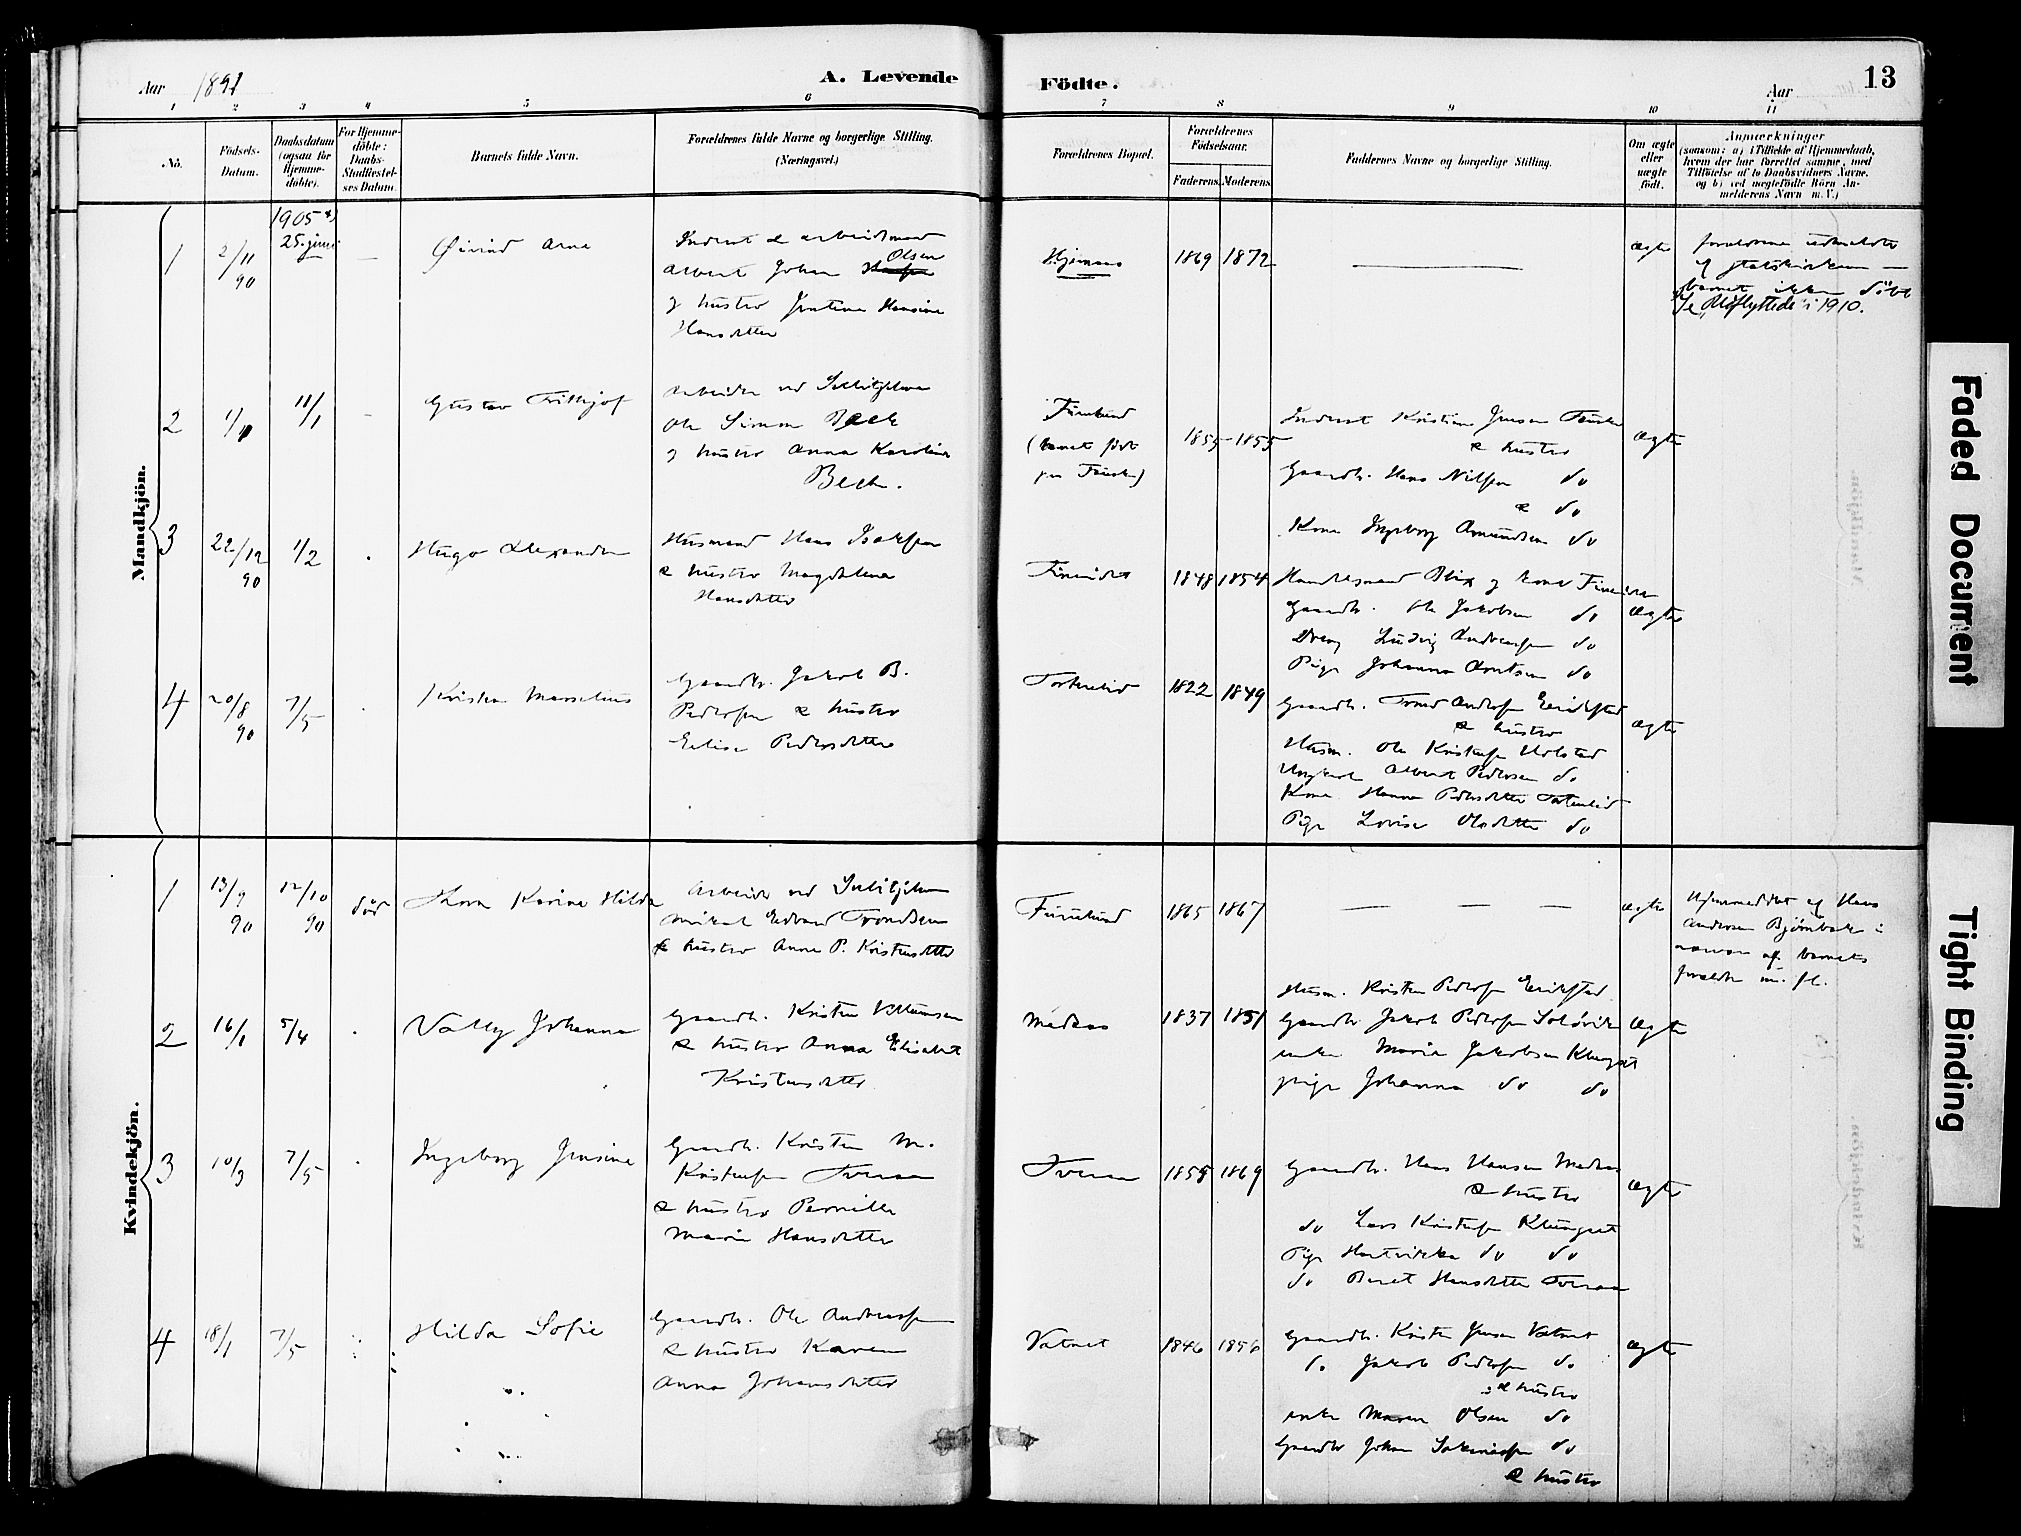 Aar 1891
A. Levende
Födte.
Aar
13
1 2 3 4 5 6 7 8 9 10 11
No.
Födsels-
Datum.
Daabsdatum
(ogsaa for
Hjemme-
döbte).
For Hjemme-
döbte:
Daabs-
Stadfæstel-
ses Datum.
Barnets fulde Navn.
Forældrenes fulde Navne og borgerlige Stilling.
(Næringsvei.)
Forældrenes Bopæl.
Forældrenes
Födselsaar.
Faderens
Moderens
Faddernes Navne og borgerlige Stilling.
Om ægte
eller
uægte
födt.
Anmærkninger
(saasom: a) i Tilfælde af Hjemmedaab,
hvem der har forrettet samme, med
Tilföielse af to Daabsvidners Navne.
og b) ved uægtefödte Börn An-
melderens Navn m. V.)
Mandkjön.
1
2/11
90
1905
25. juni
Øivind Arne
Inderst & arbeidsmand
Albert Johan Olsen
og hustro Jentine Hansine
Hansdatter
1869 1872
ægte
forældrene udmeldte
af statskirken —
barnet ikke döbt
Se "Udflyttede" i 1910.
2
11/1
Gustav Frithjof
Arbeider ved Sulitjelma
Ole Simon Beck
og hustro Anna Karolina
Beck.
Furulund
(barnet født
paa Fauske)
1855 - 1855
Inderst Kristian Jensen Fauske
& hustro
Gaardbr. Hans Nilssen do
& do
Kone Ingeborg Amundsen do
ægte
3
22/12
90
1/2
Hugo Alexander
Husmand Hans Isaksen
& hustro Magdalena
Hansdatter
Finneidet
1848 1854
Handelsmand Blix og kone Finneidet
Gaardbr. Ole Jakobsen do
Dreng Ludvig Andreassen do
Pige Johanna Arntsen do
ægte
4
20/8
90
7/5
Kristian Marselius
Gaardbr. Jakob B.
Pedersen & hustro
Elise Pedersdatter
Tortenlid
1822 1849
Gaardbr. Trond Andersen Erikstad
& hustro
Husm. Ole Kristensen Holstad
Ungkarl Albert Pedersen do
Kone Hanna Pedersdatter Tortenlid
Pige Lovise Olsdatter do
ægte
Kvindekjön.
1
13/9
90
12/10
90
død
Karine Hilda
Arbeider ved Sulitjelma
Mikal Edvard Trondsen
& hustro Anna P. Kristensdatter
Furulund
1865 1867
ægte
Hjemmedöbt af Hans
Andersen Bjørnbak i
nærvær af barnets
forældre m. fl.
2
16/1
5/4
Vally Johanna
Gaardbr. Kristen Villumsen
& hustro Anna Elisabet
Kristensdatter
Medaas
1837 1851
Husm. Kristen Pedersen Erikstad
Gaardbr. Jakob Pedersen Solövik
enke Maria Jakobsen Klungset
pige Johanna do do
ægte
3
10/3
7/5
Ingeborg Jensine
Gaardbr. Kristen M.
Kristensen Tveraa
& hustro Pernille
Marie Hansdatter
Tveraa
1855 1869
Gaardbr. Hans Hansen Medaas
& hustro
do Lars Kristensen Klungset
Pige Hartvikka do do
do Beret Hansdatter Tveraa
ægte
4
18/1
7/5
Hilda Sofie
Gaardbr. Ole Andreassen
& hustro Karen
Anna Johansdatter
Vatnet
1846 1856
Gaardbr. Kristen Jensen Vatnet
do Jakob Pedersen do
& hustro
enke Maren Olsen do
Gaardbr Johan Sakariassen do
& hustro
ægte
Faded Document
Tight Binding